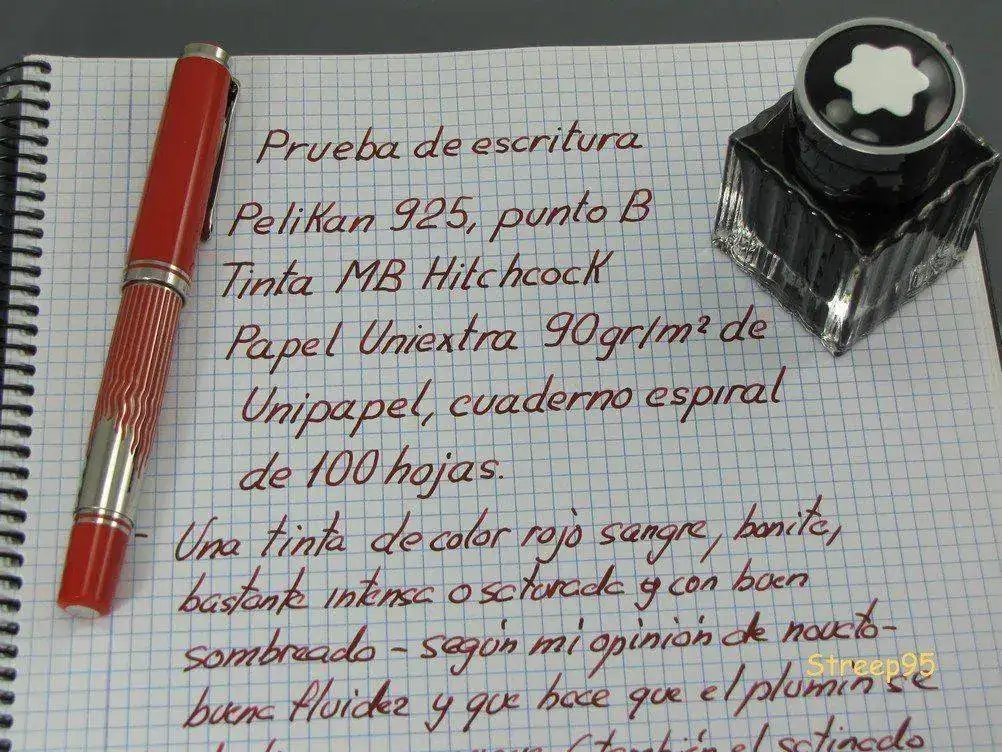 Prueba de escritura
Pelikan 925, punto B
Tinta MB Hitchcock
Papel Uniextra 90gr/m² de
Unipapel, cuaderno espiral
de 100 hojas.
- Una tinta de color rojo sangre, bonita,
bastante intensa o saturada y con buen
sombreado - según mi opinión de novato-
Streep95
buena fluidez y que hace que el plumín se
(también el satinado